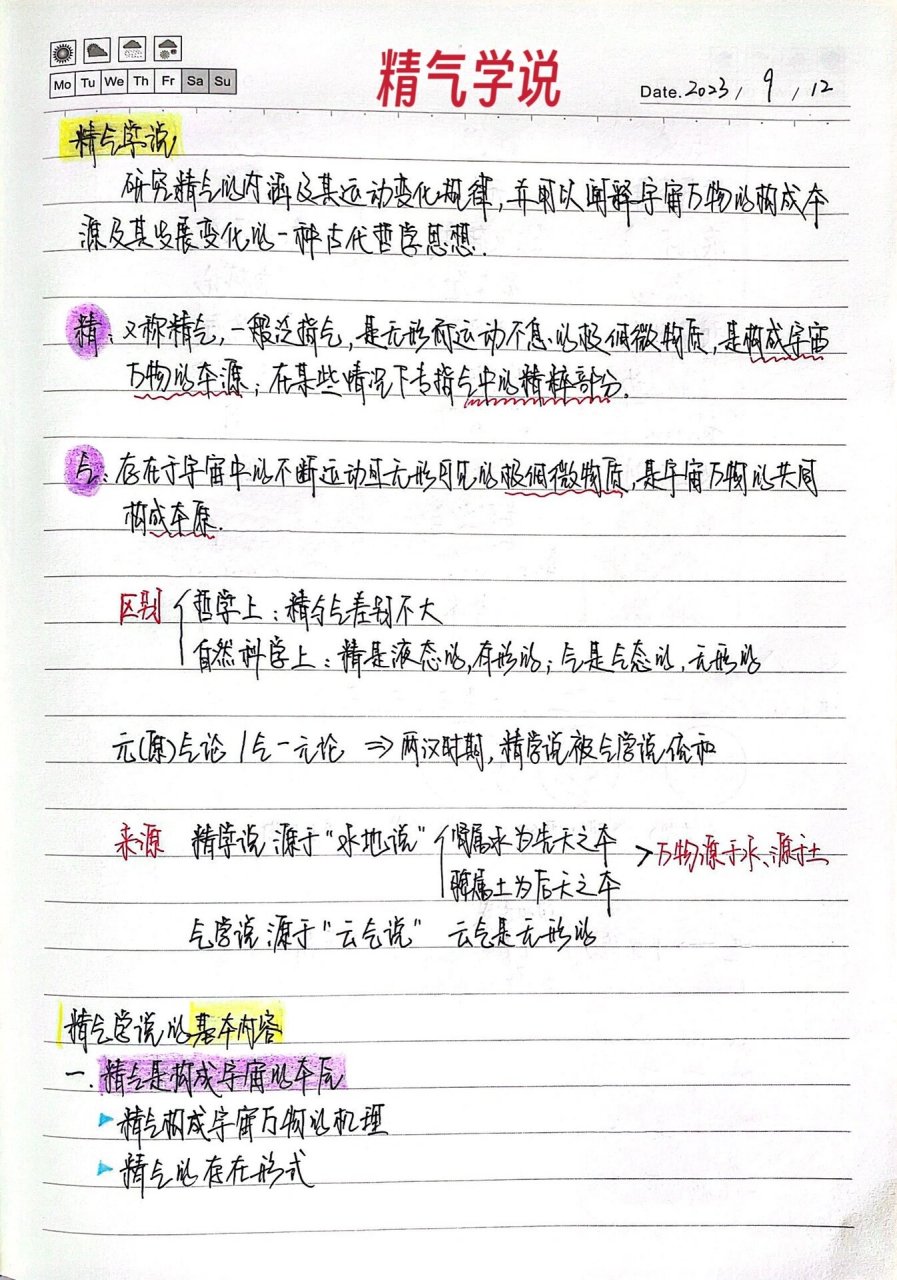 精气学说
Mo Tu We Th Fr Sa Su
Date. 2023 / 9 / 12
精气学说
研究精气的内涵及其运动变化规律，并用以阐释宇宙万物的构成本
源及其发展变化的一种古代哲学思想.
精：又称精气，一般泛指气，是无形而运动不息的极细微物质，是构成宇宙
万物的本源；在某些情况下专指气中的精粹部分.
气：存在于宇宙中的不断运动且无形可见的极细微物质，是宇宙万物的共同
构成本原.
区别 哲学上：精与气差别不大
自然科学上：精是液态的，有形的；气是气态的，无形的
元(原)气论 / 气一元论 ⇒ 两汉时期，精学说被气学说
来源 精学说 源于“水地说” 肾属水为先天之本 > 万物源于水、源于土
脾属土为后天之本
气学说 源于“云气说” 云气是无形的
精气学说的基本内容
一. 精气是构成宇宙的本原
精气构成宇宙万物的机理
精气的存在形式